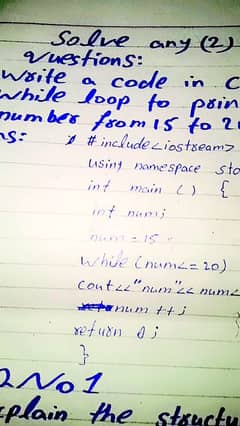 Solve any (2)
questions:
Write a code in C
While loop to prin
number from 15 to 2
ns: # include <iostream>
using namespace std
int main () {
int num;
num = 15
while (num <= 20)
cout << "num" << num <
num ++ ;
return 0 ;
}
QNo1
xplain the structu